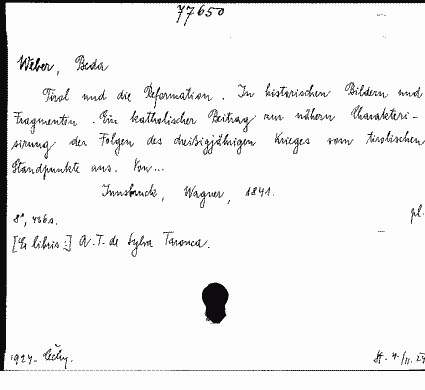 77650
Weber, Beda
Tirol und die Reformation. In historischen Bildern und
Fragmenten. Ein katholischer Beitrag zur nähern Charakteri-
sirung der Folgen des dreißigjährigen Krieges vom tirolischen
Standpunkte aus. Von...
Innsbruck, Wagner, 1841.
8°, 436s. pl.
[Ex libris:] A. T. de Sylva Tarouca.
1924- Čechy.